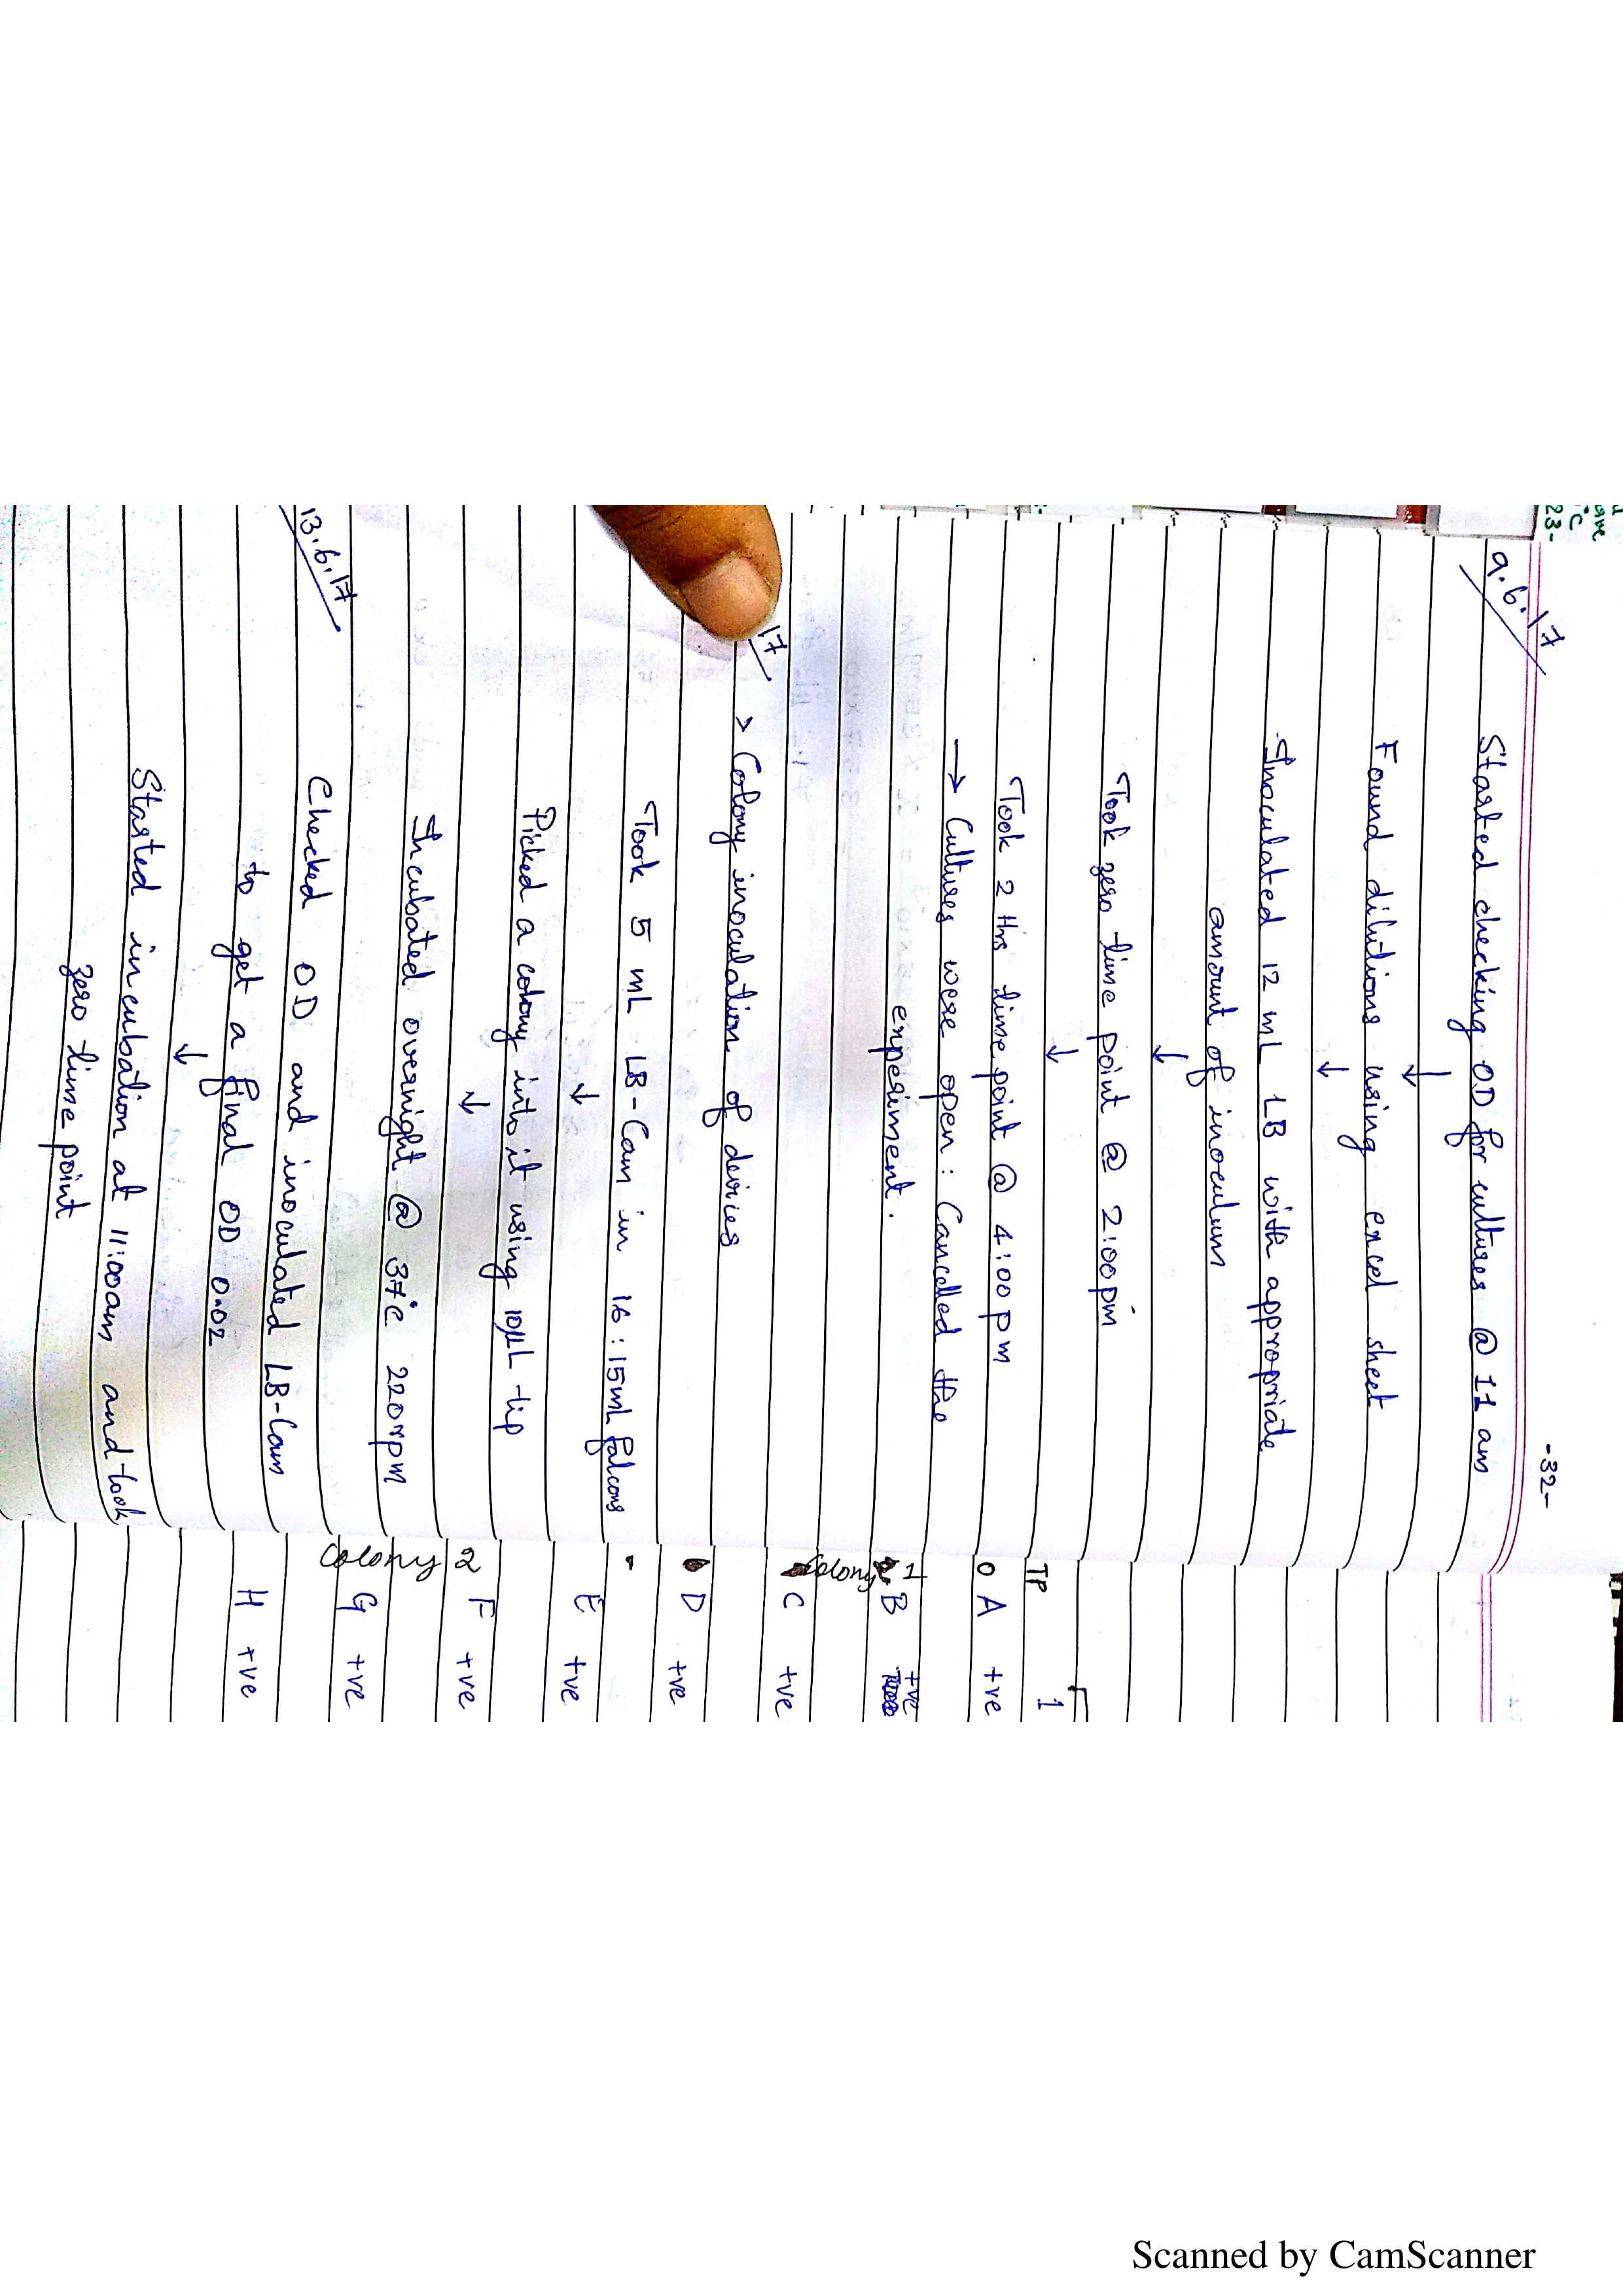 -32-
9.6.17
Started checking OD for cultures @ 11 am
↓
Found dilutions using excel sheet
↓
Inoculated 12 mL LB with appropriate
amount of inoculum
↓
Took zero time point @ 2:00pm
↓
Took 2 Hrs time point @ 4:00 pm
→ Cultures were open : Cancelled the
experiment.
17
> Colony inoculation of devices
Took 5 mL LB-Cam in 16 : 15mL falcons
↓
Picked a colony into it using 10µL tip
↓
Incubated overnight @ 37°C 220rpm
13.6.17
Checked OD and inoculated LB-Cam
to get a final OD 0.02
↓
Started incubation at 11:00am and took
zero time point
TP 1
0 A +ve
Colony 1 B +ve
C +ve
D +ve
E +ve
F +ve
Colony 2
G +ve
H +ve
23-
Scanned by CamScanner